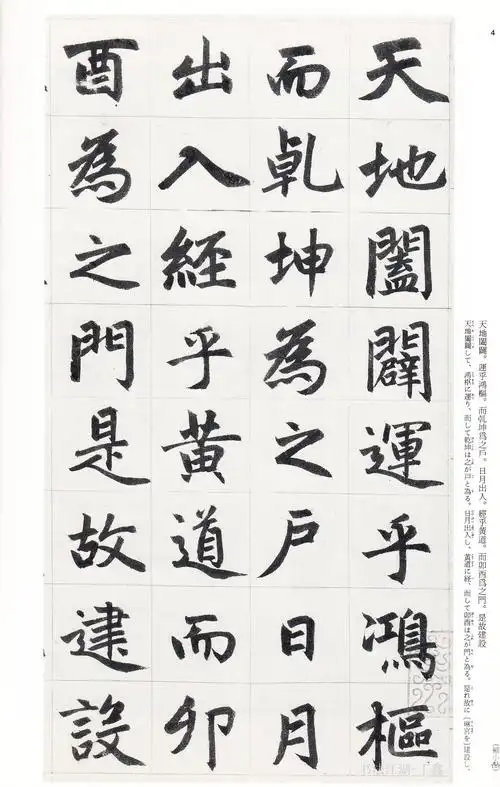 4
天地闔闢運乎鴻樞
而乹坤為之戶日月
出入經乎黄道而卯
酉為之門是故建設
天地闔闢。運乎鴻樞。而乾坤爲之戶。日月出入。經乎黄道。而卯酉爲之門。是故建設
天地闔闢して、鴻枢に運り、而して乾坤は之が戸と為る。日月出入し、黄道に経、而して卯酉は之が門と為る。是れ故に［　宮を］建設し、